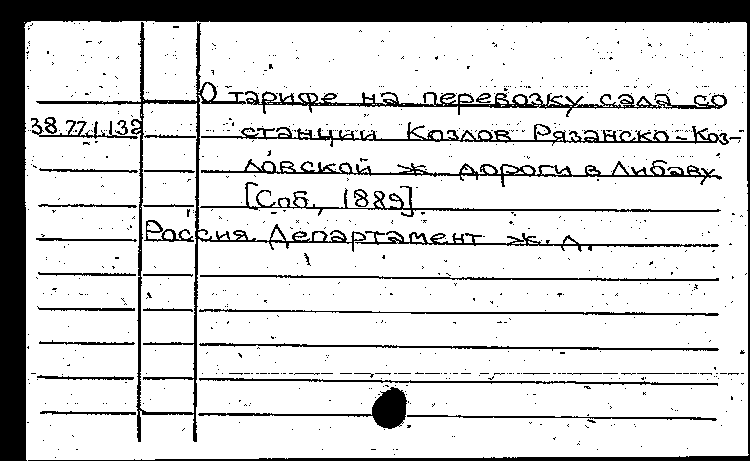 О тарифе на перевозку сала со
38.77.1.132 станции Козлов Рязанско-Коз-
ловской ж. дороги в Либаву.
[Соб., 1889].
Россия. Департамент ж. д.